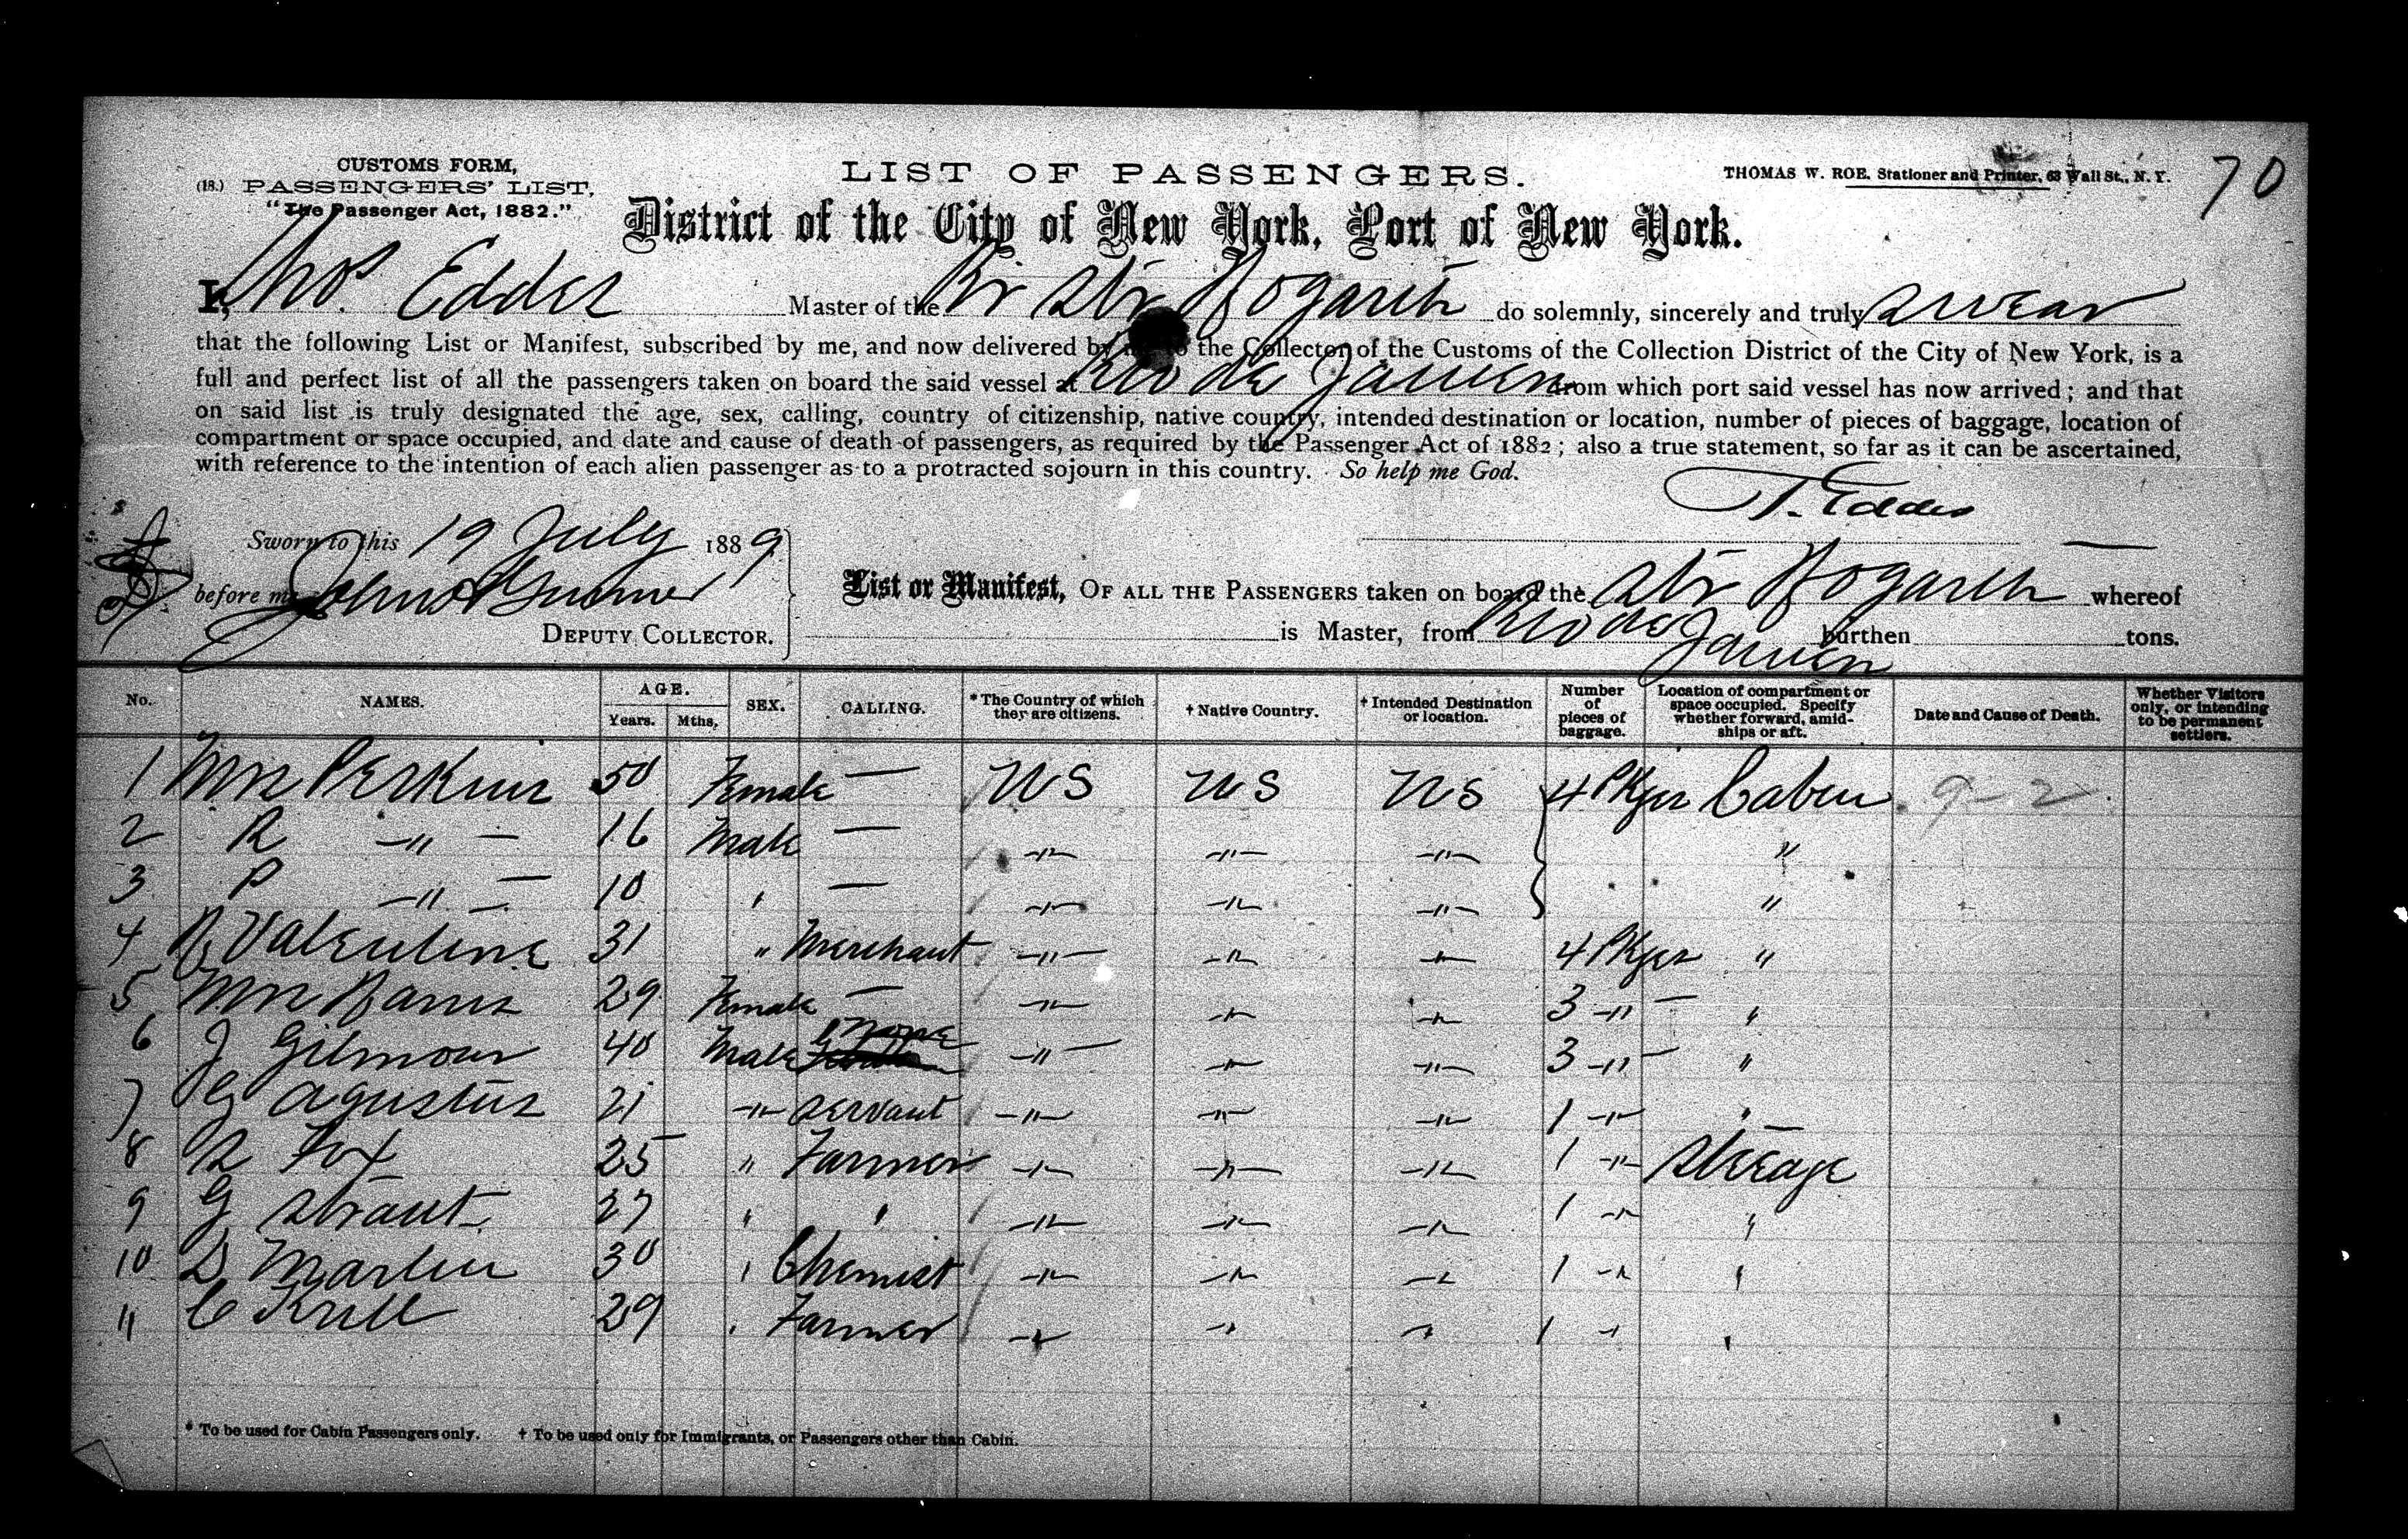 CUSTOMS FORM,
(18.) PASSENGERS' LIST,
"The Passenger Act, 1882."
LIST OF PASSENGERS.
THOMAS W. ROE. Stationer and Printer, 63 Wall St., N. Y.
70
District of the City of New York, Port of New York.
I, Thos. Eddes Master of the Br Str Hogarth do solemnly, sincerely and truly swear
that the following List or Manifest, subscribed by me, and now delivered by to the Collector of the Customs of the Collection District of the City of New York, is a
full and perfect list of all the passengers taken on board the said vessel at Rio de Janeiro from which port said vessel has now arrived; and that
on said list is truly designated the age, sex, calling, country of citizenship, native country, intended destination or location, number of pieces of baggage, location of
compartment or space occupied, and date and cause of death of passengers, as required by the Passenger Act of 1882; also a true statement, so far as it can be ascertained,
with reference to the intention of each alien passenger as to a protracted sojourn in this country. So help me God.
T. Eddes
Sworn to this 19 July 1889
before me
DEPUTY COLLECTOR.
List or Manifest, OF ALL THE PASSENGERS taken on board the Str Hogarth whereof
is Master, from Rio de Janeiro burthen tons.
No. NAMES. AGE. Years. Mths. SEX. CALLING. * The Country of which they are citizens. † Native Country. † Intended Destination or location. Number of pieces of baggage. Location of compartment or space occupied. Specify whether forward, amidships or aft. Date and Cause of Death. Whether Visitors only, or intending to be permanent settlers.
1 Mrs Perkins 50 Female — US US US 4 Pkgs Cabin 9-2
2 R —"— 16 Male — —"— —"— —"— "
3 P —"— 10 " — —"— —"— —"— "
4 H Valentine 31 " Merchant —"— —"— —"— 4 Pkgs "
5 Mrs Harris 29 Female — —"— —"— —"— 3 —"— "
6 J Gilmour 40 Male None —"— —"— —"— 3 —"— "
7 G Agustus 21 —"— Servant —"— —"— —"— 1 —"— "
8 R Fox 25 " Farmer —"— —"— —"— 1 —"— Steeage
9 G Straut 27 " " —"— —"— —"— 1 —"— "
10 D Martin 30 " Chemist —"— —"— —"— 1 —"— "
11 C Krull 29 " Farmer —"— —"— —"— 1 —"— "
* To be used for Cabin Passengers only. † To be used only for Immigrants, or Passengers other than Cabin.